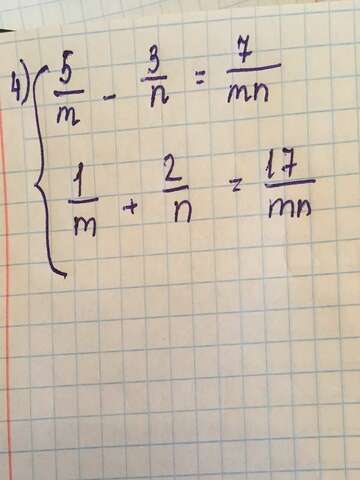 4) { 5/m - 3/n = 7/mn
1/m + 2/n = 17/mn